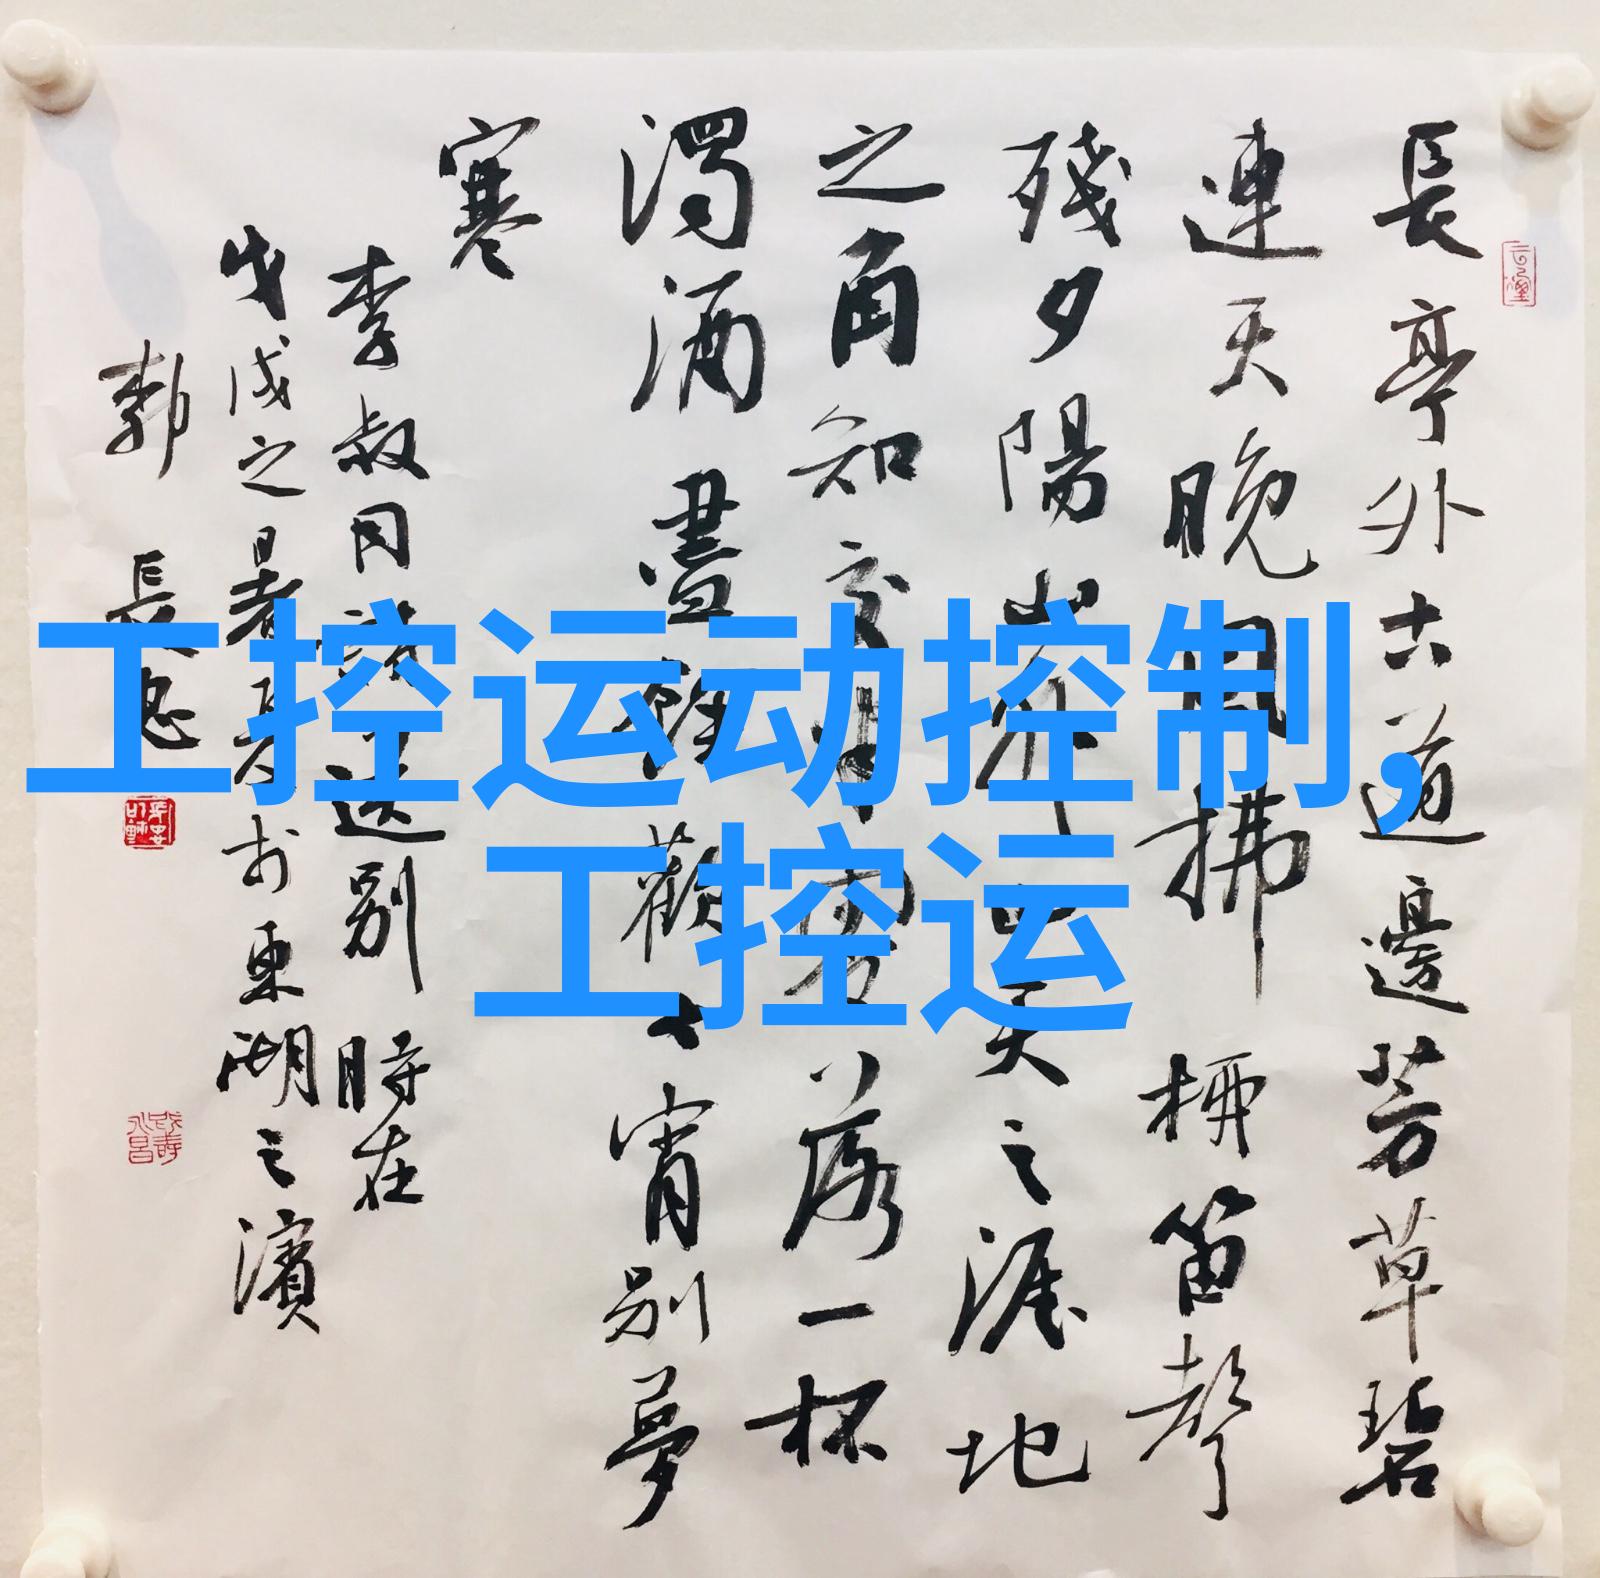 長亭外古道邊芳草碧
連天晚風拂柳笛聲
殘夕陽山外山天之涯地
之角知交半零落一杯
濁酒盡餘歡今宵別夢
寒
李叔同詞送別時在
戊戌之暑月於東湖之濱
長忠
工控运动控制,
工控运